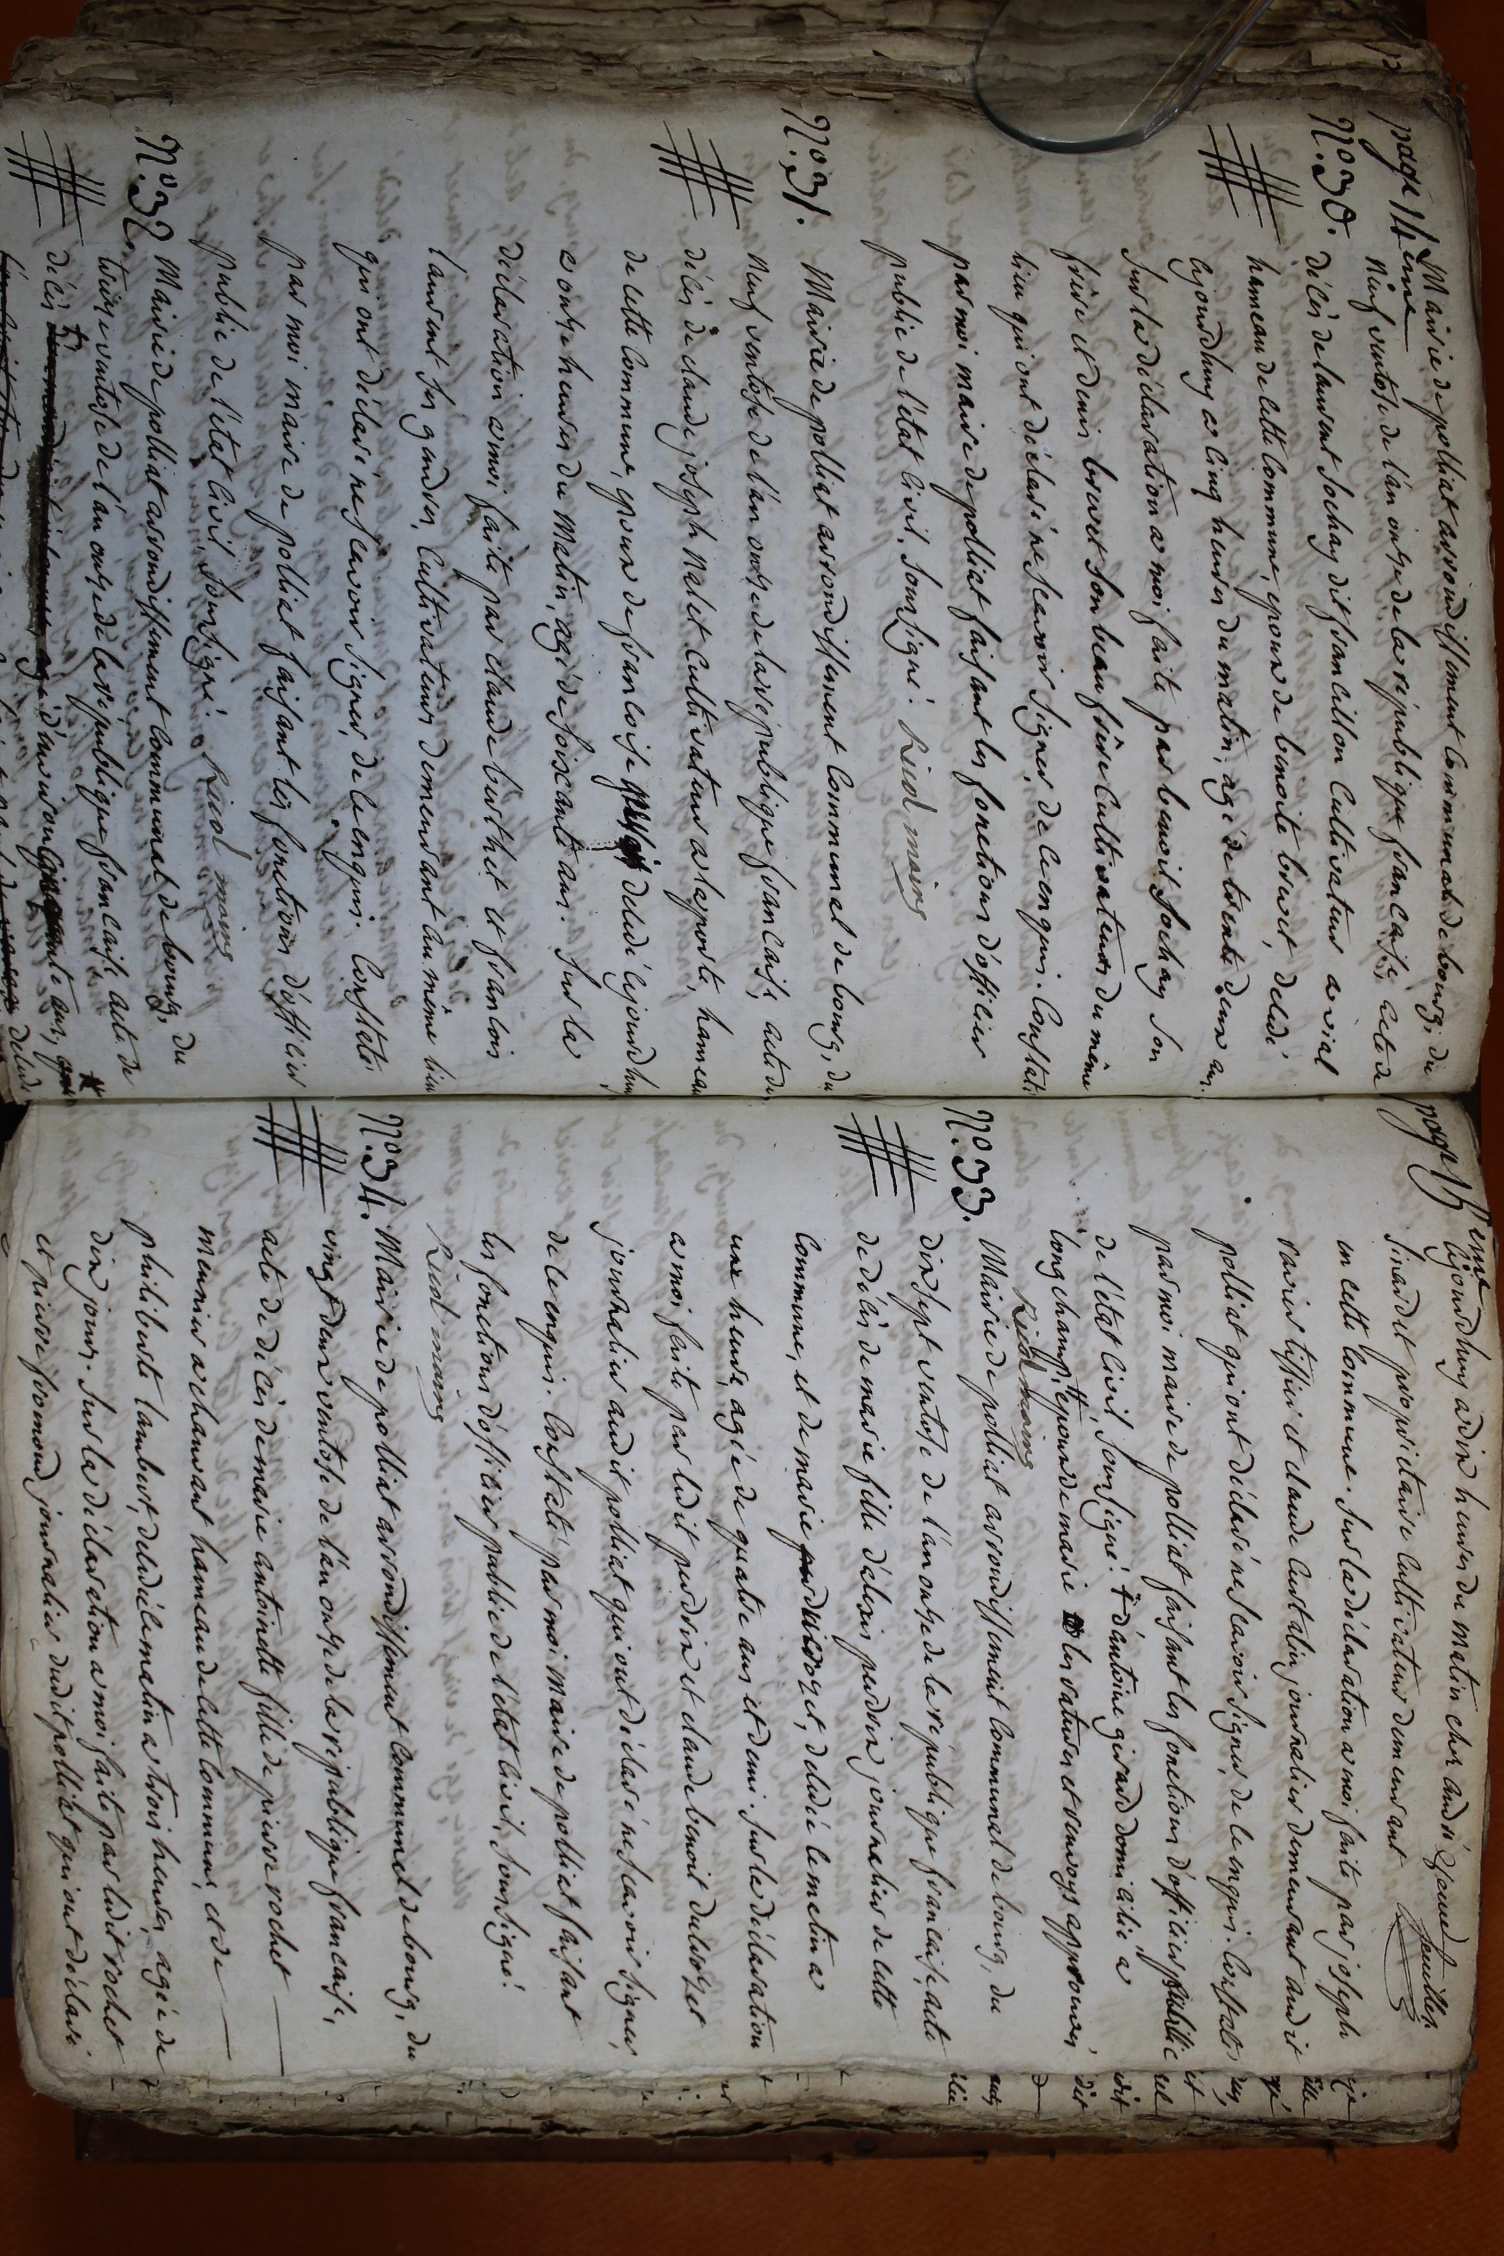 page 14eme
Mairie de polliat arrondissement Communal de bourg, du
Neuf ventose de l'an onze de la république francaise, acte de
N.° 30. décès de laurent sochay dit francillon Cultivateur a vial
hameau de cette Commune, epoux de benoite brevet, delédé
cejourdhuy a Cinq heures du matin, agé de trente deux ans.
sur la déclaration a moi faite par benoit sochay son
frère et denis brevet son beau frère Cultivateurs du même
lieu qui ont déclaré ne scavoir signer, de ce enquis. Constaté
par moi maire de polliat faisant les fonctions d'officier
public de l'état Civil, soussigné. Ricol maire
N.° 31. Mairie de polliat arrondissement Communal de bourg, du
Neuf ventose de l'an onze de la république francaise, acte de
décès de claude joseph Nalet Cultivateur a laposte, hameau
de cette Commune, epoux de francoise deledé cejourdhuy
a onze heures du Matin, agé de soixante ans. sur la
déclaration a moi faite par claude berthet et francois
laurent ses gendres, Cultivateurs demeurant au même lieu
qui ont déclaré ne scavoir signer, de ce enquis. Constaté
par moi maire de polliat faisant les fonctions d'officier
public de l'état Civil, soussigné. Ricol maire
N.° 32. Mairie de polliat arrondissement Communal de bourg, du
ventose de l'an onze de la république francaise acte de
décès † agé d'environ Cinquante ans,
deledé
page 15eme
cejourdhuy a dix heures du matin chez andré
sinardet propriétaire Cultivateur demeurant
en cette Commune. sur la déclaration a moi faite par joseph
et claude Curtalin journalier demeurant audit
polliat qui ont déclaré ne scavoir signer, de ce enquis. Constaté
par moi maire de polliat faisant les fonctions d'officier public
de l'état Civil, soussigné. † d'antoine girard domicilié a
longchamp, epoux de marie les ratures et renvoys approuvés
Ricol maire
N.° 33. Mairie de polliat arrondissement Communal de bourg, du
dix sept ventose de l'an onze de la république francaise, acte
de décès de marie fille d'alexis perdrix journalier de cette
Commune, et de marie deledée le matin a
une heure, agée de quatre ans et demi sur la déclaration
a moi faite par ledit perdrix et claude benoit
journalier audit polliat qui ont déclaré ne scavoir signer,
de ce enquis. Constaté par moi maire de polliat faisant
les fonctions d'officier public de l'état Civil, soussigné.
Ricol maire
N.° 34. Mairie de polliat arrondissement Communal de bourg, du
vingt deux ventose de l'an onze de la république francaise,
acte de décès de marie antoinette fille de pierre rochet
meunier a chanvant hameau de cette Commune, et de
philiberte lambert, deledé le matin a trois heures, agée de
dix jours. sur la déclaration a moi faite par ledit rochet
et pierre fromond journalier dudit polliat qui ont déclaré